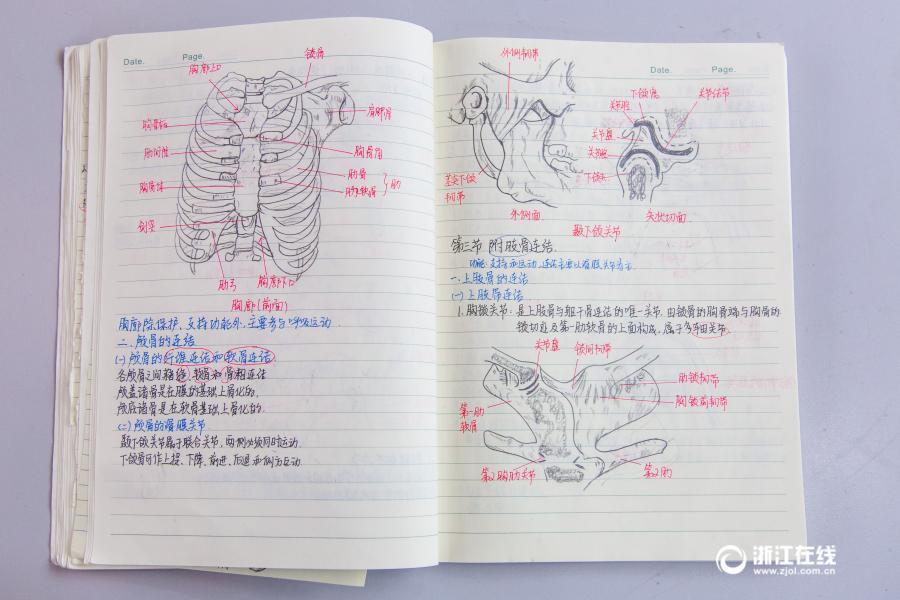 Date.
Page.
胸廓上口
锁骨
肩胛骨
胸骨柄
胸骨角
肋间隙
肋骨
肋软骨
肋
胸骨体
剑突
肋弓
胸廓下口
胸廓(前面)
胸廓除保护、支持功能外,主要参与呼吸运动.
二、颅骨的连结
(一)颅骨的纤维连结和软骨连结
各颅骨之间借缝、软骨和骨相连结
颅盖诸骨是在膜的基础上骨化的
颅底诸骨是在软骨基础上骨化的.
(二)颅骨的滑膜关节
颞下颌关节属于联合关节,两侧必须同时运动.
下颌骨可作上提、下降、前进、后退和侧方运动.
Date.
Page.
外侧韧带
茎突下颌
韧带
外侧面
下颌窝
关节结节
关节腔
关节盘
关节囊
下颌头
矢状切面
颞下颌关节
第三节 附肢骨连结
功能:支持和运动,连结主要以滑膜关节为主
一、上肢骨的连结
(一)上肢带连结
1.胸锁关节:是上肢骨与躯干骨连结的唯一关节.由锁骨的胸骨端与胸骨的
锁切迹及第一肋软骨的上面构成,属于多轴关节.
关节盘
锁间韧带
肋锁韧带
胸锁前韧带
第一肋
软骨
第2胸肋关节
第2肋
浙江在线
www.zjol.com.cn